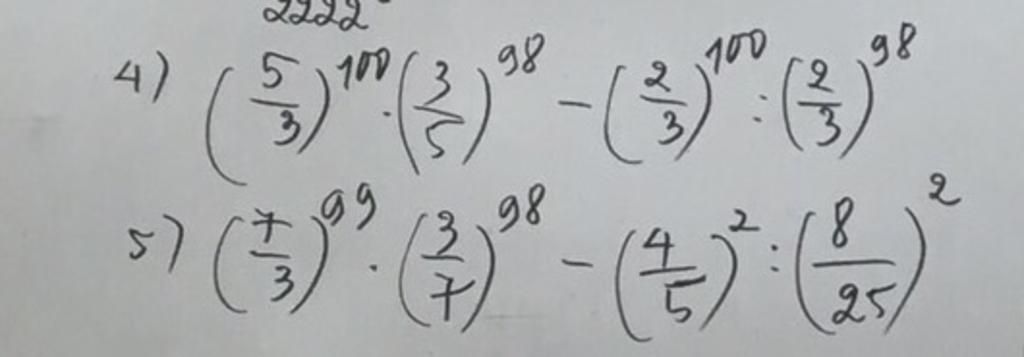 2222
4) (5/3)^100 · (3/5)^98 − (2/3)^100 : (2/3)^98
5) (7/3)^99 · (3/7)^98 − (4/5)^2 : (8/25)^2